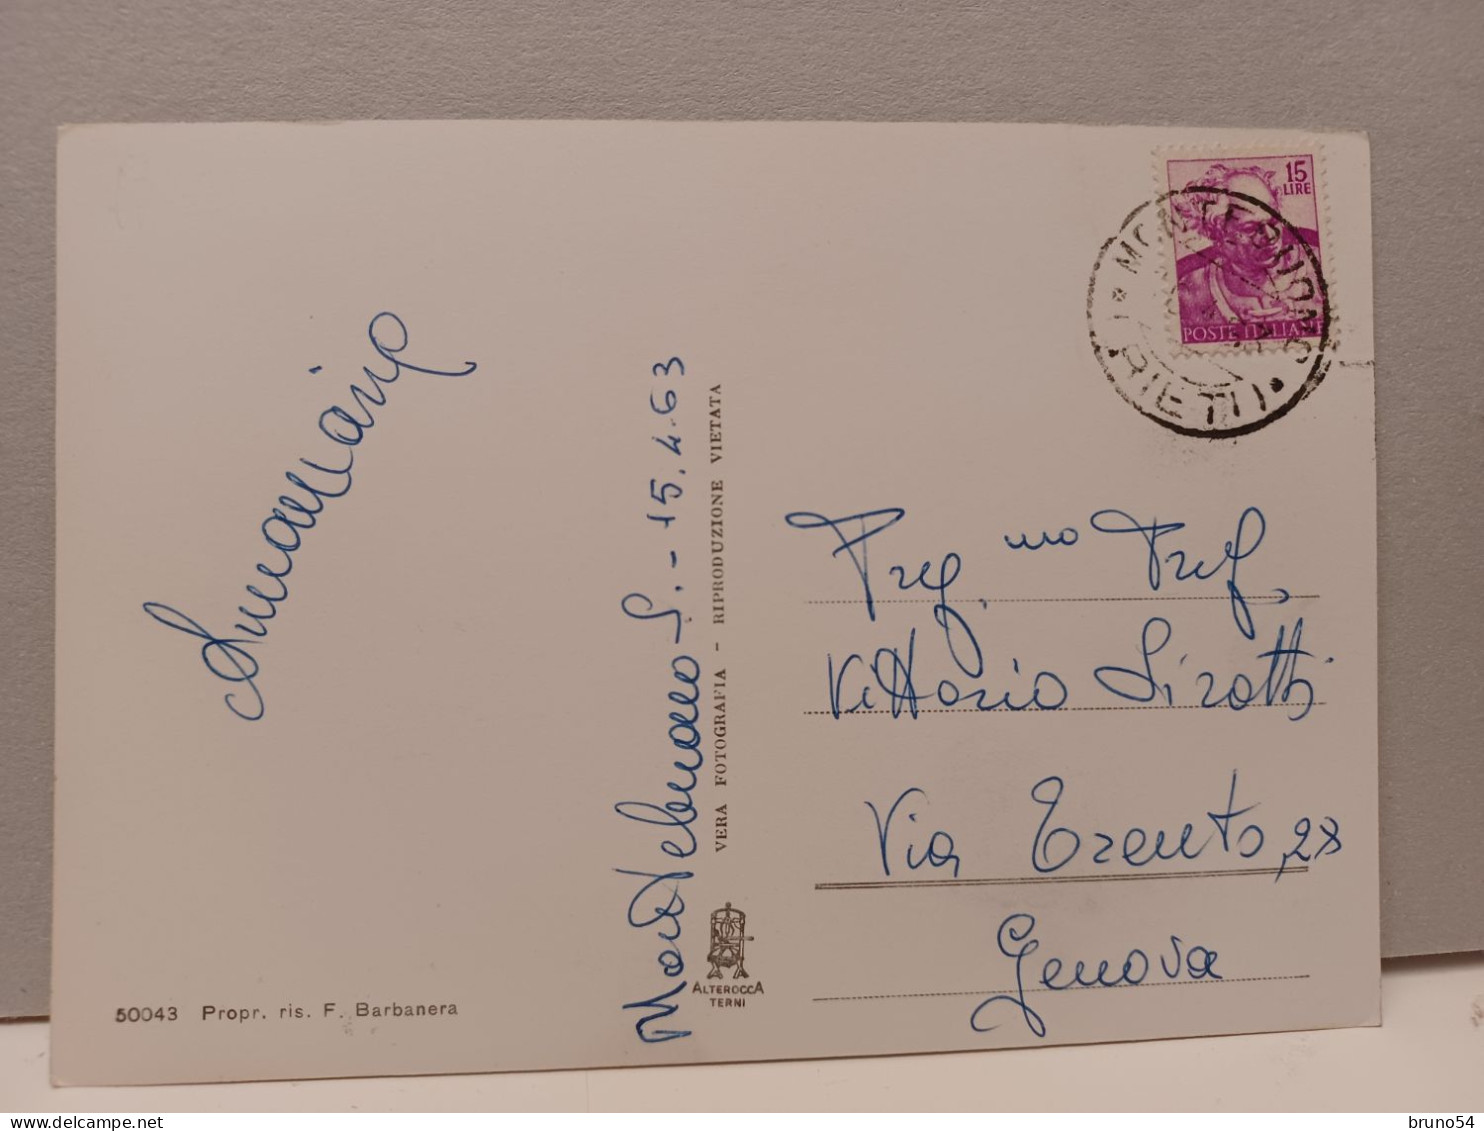 15
LIRE
POSTE ITALIANE
MONTEBUONO
(RIETI)
Preg.mo Prof.
Vittorio Sirotti
Via Trento, 28
Genova
Montebuono S. - 15.4.63
VERA FOTOGRAFIA - RIPRODUZIONE VIETATA
ALTEROCCA
TERNI
50043 Propr. ris. F. Barbanera
bruno54